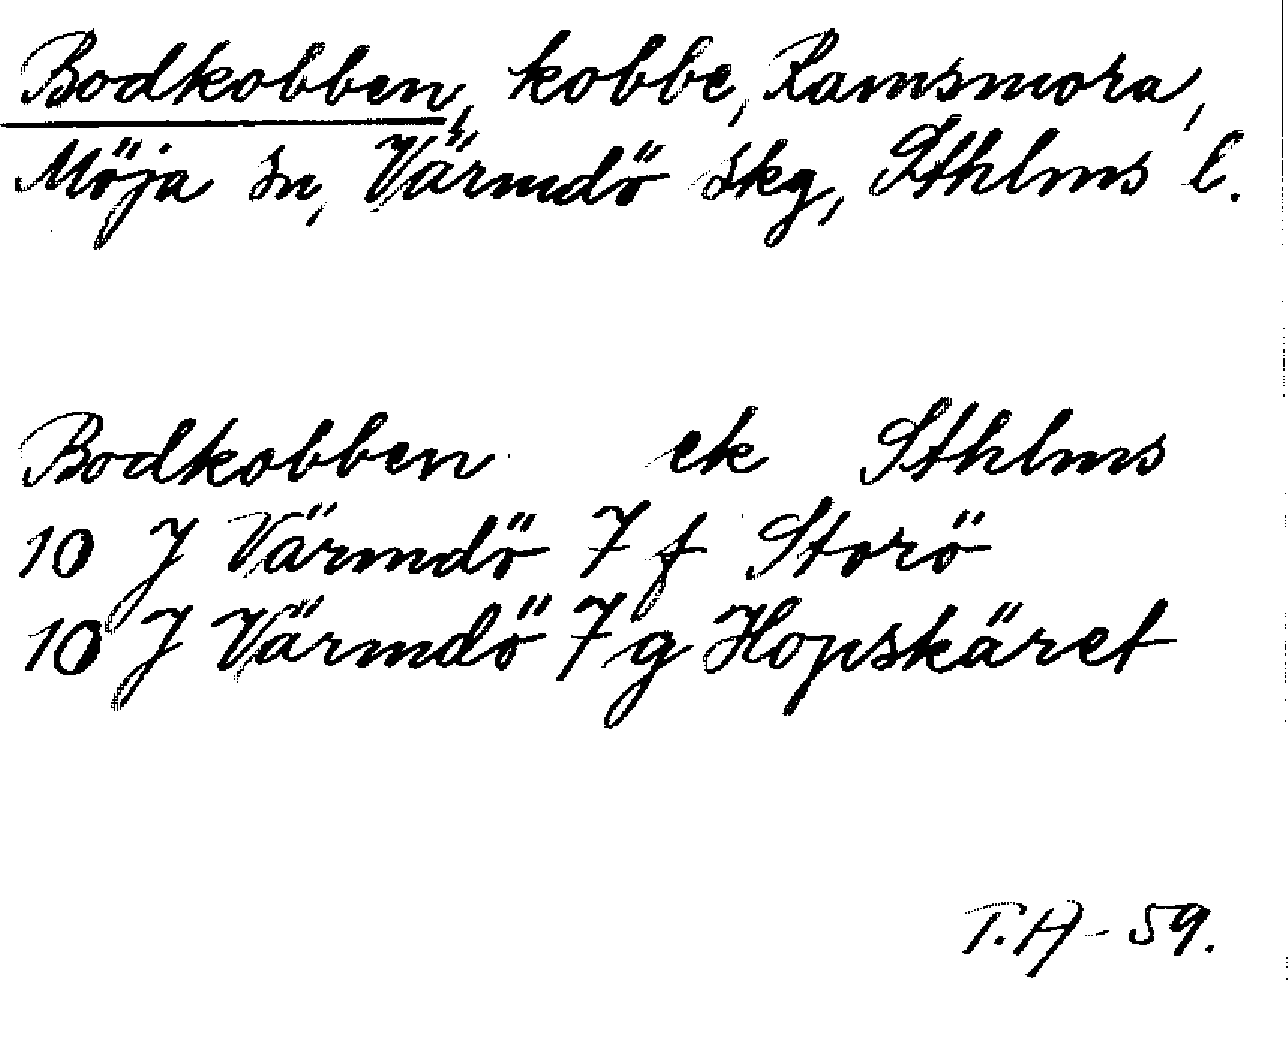 Bodkobben, kobbe, Ramsmora,
Möja sn, Värmdö skg, Sthlms l.
Bodkobben ek Sthlms
10 J Värmdö 7 f Storö
10 J Värmdö 7 g Hopskäret
T.H - 59.